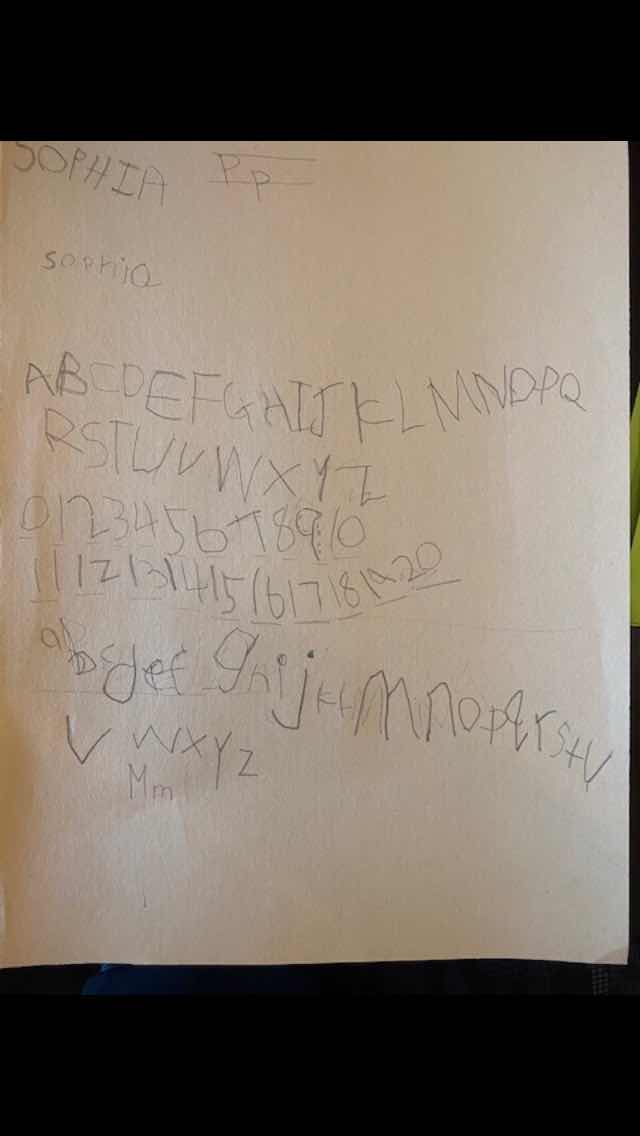 SOPHIA Pp
sophia
ABCDEFGHIJKLMNOPQ
RSTUVWXYZ
0 1 2 3 4 5 6 7 8 9 10
11 12 13 14 15 16 17 18 19 20
abcdefghijklmnopqrstu
vwxyz
Mm